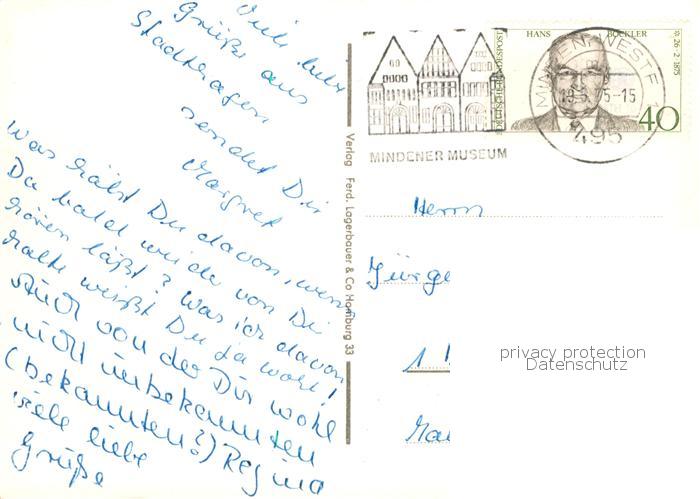 Viele liebe
Grüße aus
Stadthagen
sendet Dir
Margret
Was hälst Du davon, wenn
Du bald wieder von Dir
hören läßt? Was ich davon
halte weißt Du ja wohl!
Auch von der Dir wohl
nicht unbekannten
(bekannten?) Regina
viele liebe
Grüße
Verlag Ferd. Lagerbauer & Co Hamburg 33
MINDENER MUSEUM
HANS BÖCKLER
*26·2·1875
DEUTSCHE BUNDESPOST
40
MINDEN, WESTF 1
75-15
495
Herrn
Jürge
1
privacy protection
Datenschutz